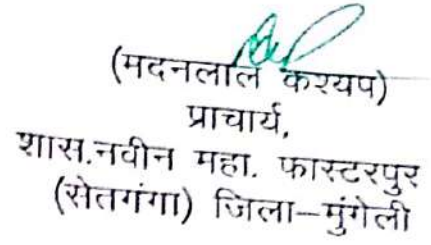 (मदनलाल कश्यप)
प्राचार्य,
शास.नवीन महा. फास्टरपुर
(सेतगंगा) जिला–मुंगेली